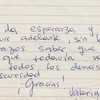 da esperanza y
ir adelante sin
brazos saber que
que todavía
todos los demás
oscuridad!
Gracias!
Valeria